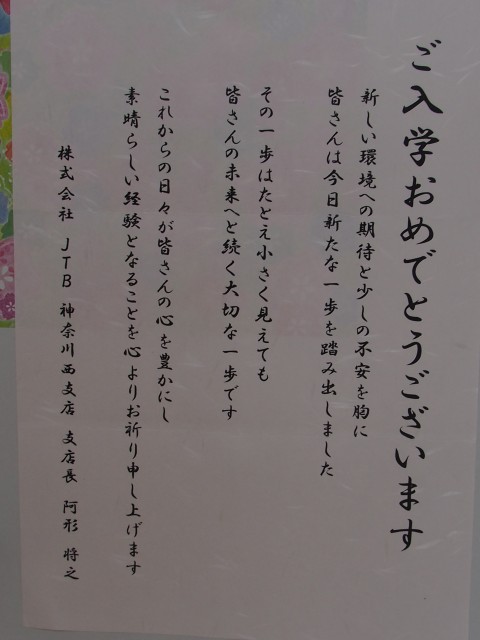 ご入学おめでとうございます
新しい環境への期待と少しの不安を胸に
皆さんは今日新たな一歩を踏み出しました
その一歩はたとえ小さく見えても
皆さんの未来へと続く大切な一歩です
これからの日々が皆さんの心を豊かにし
素晴らしい経験となることを心よりお祈り申し上げます
株式会社 JTB 神奈川西支店 支店長 阿形 将之